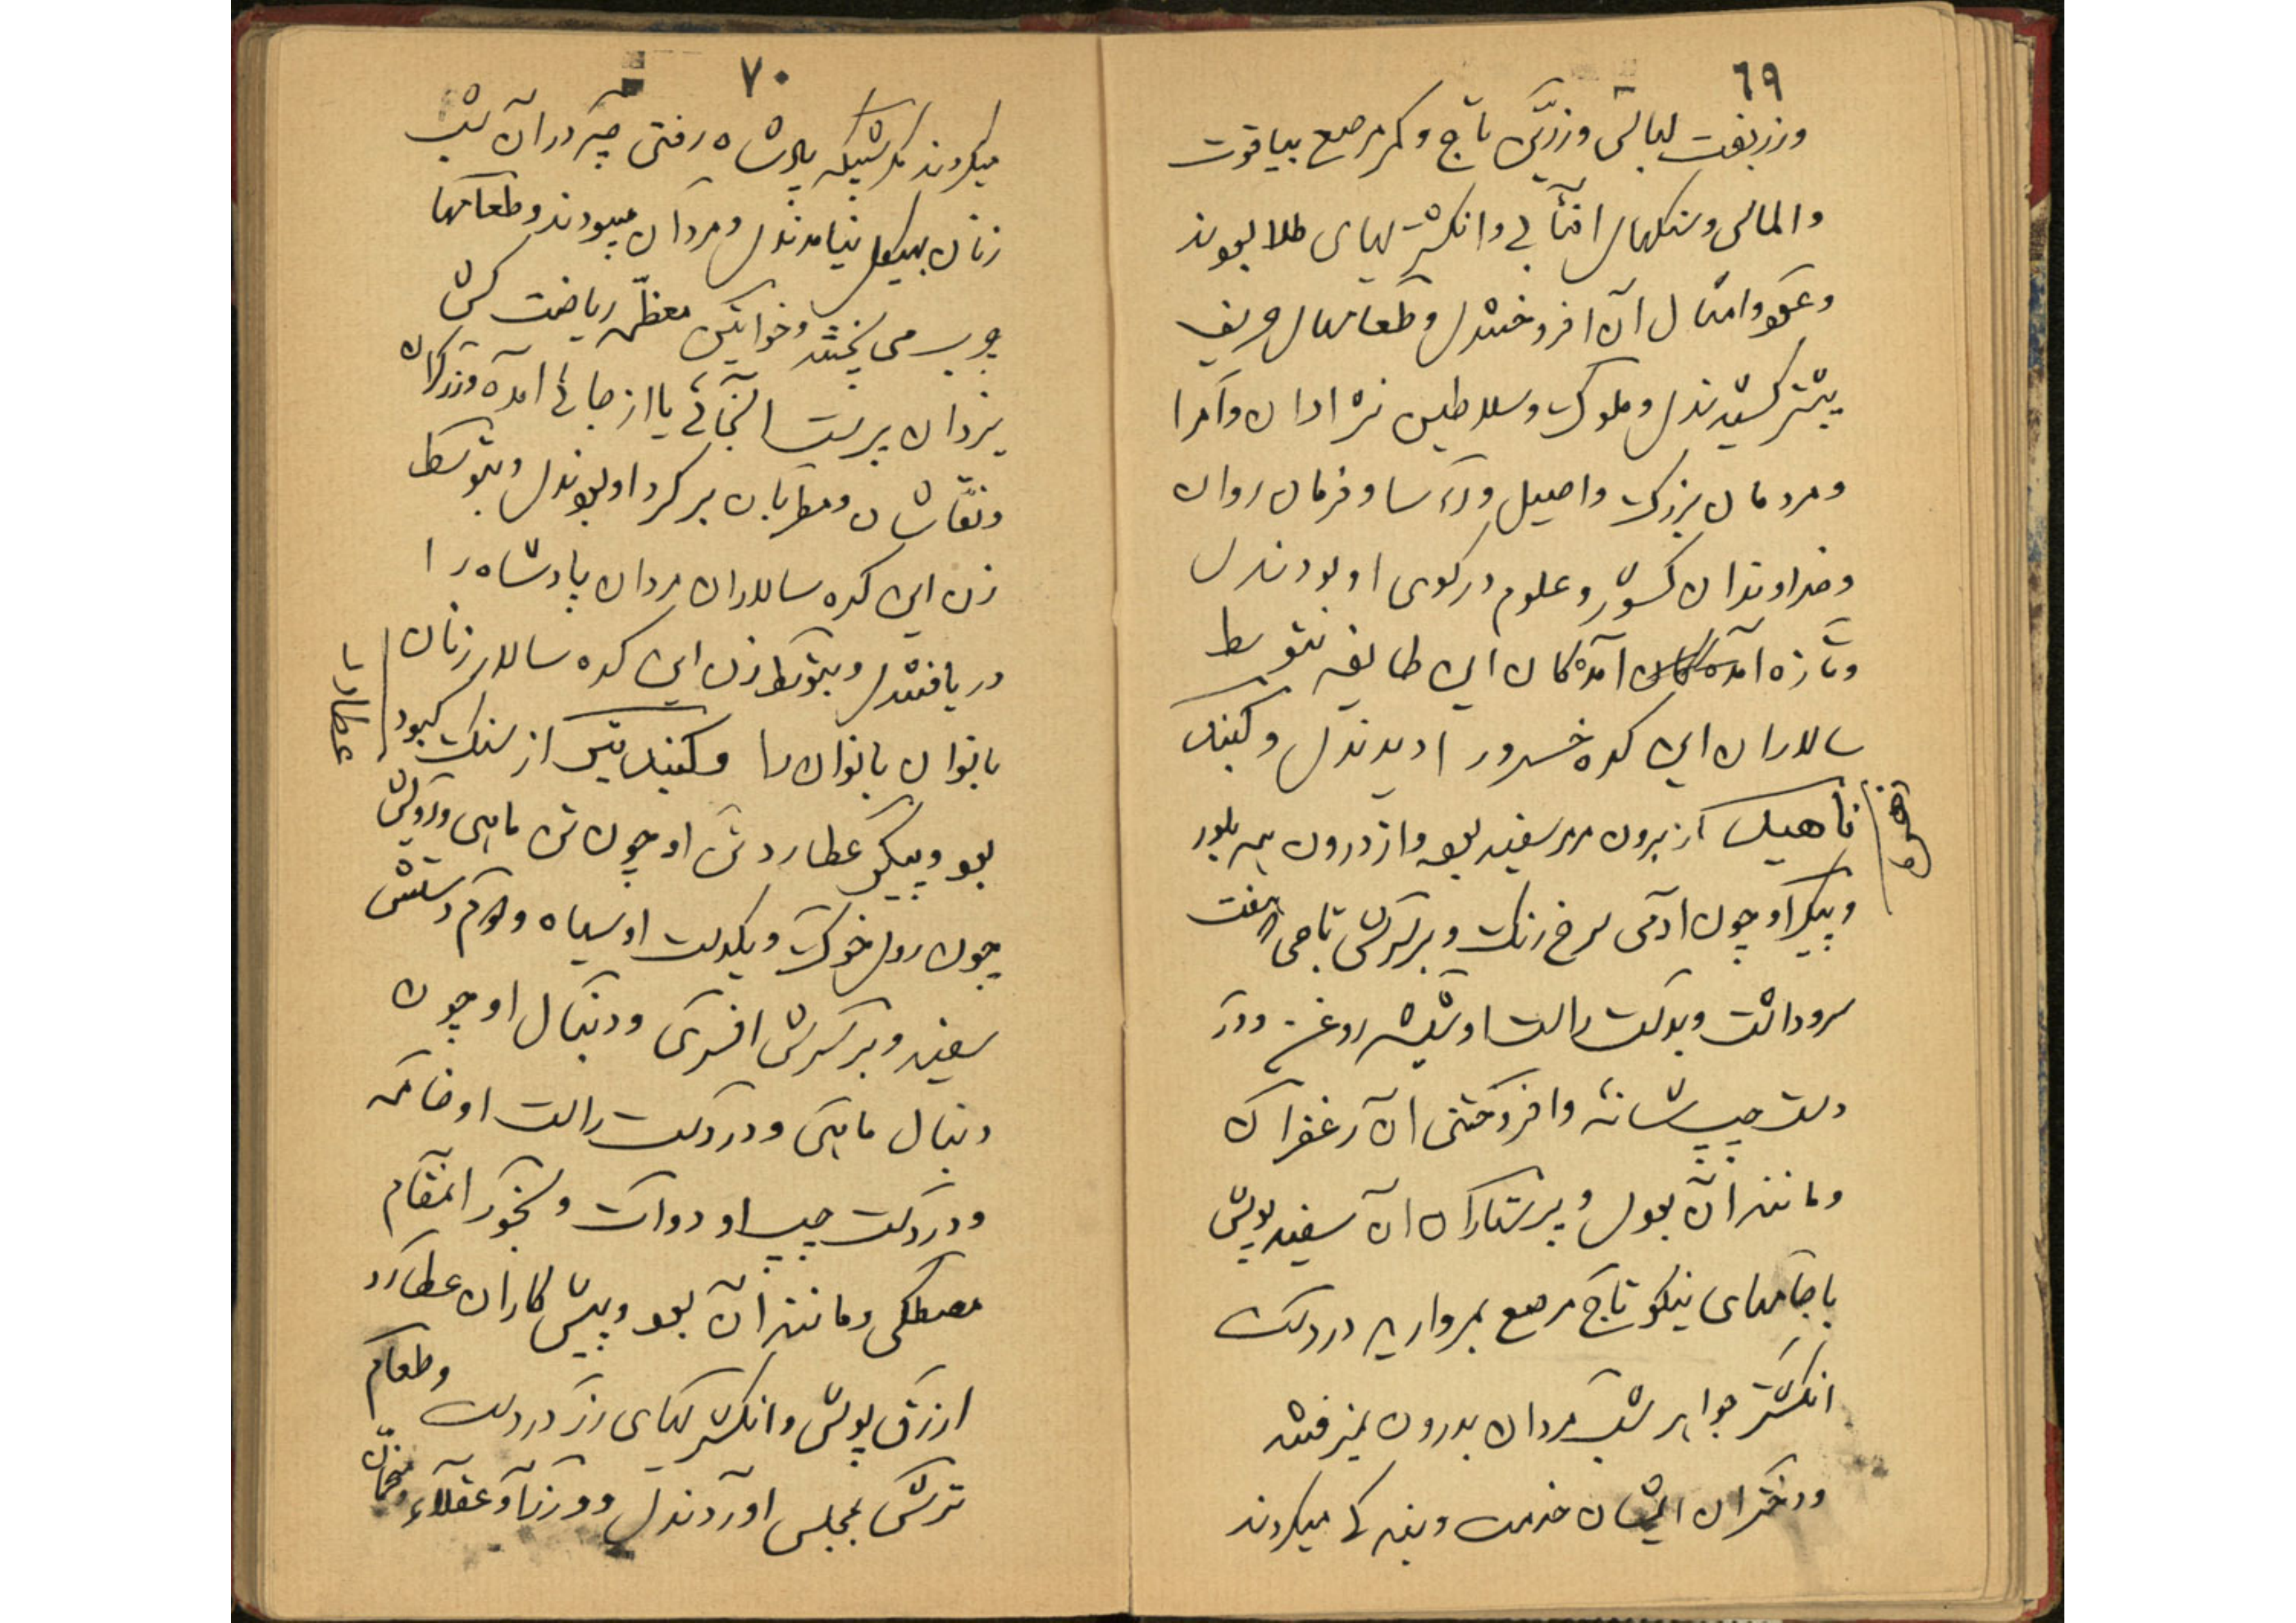 ٦٩
وزربفت لباسی وزرین تاج و کمر مرصع بیاقوت
والماس وسنگهای افتابی وانگشتریهای طلا بودند
وعود وامثال آن افروختندی وطعامهای حریف
بیشتر کشیدندی وملوک وسلاطین نژادان وامرا
ومردمان بزرگ واصیل ورؤسا وفرمان روان
وخداوندان کشور وعلوم در کوی او بودندی
وتازه آمده گان این طایفه بتوسط
سالاران این کده خسرو را دیدندی وگنبد
زهره
ناهید از برون مرمر سفید بود واز درون همه بلور
وپیکر او چون ادمی سرخ رنگ وبر سرش تاجی هفت
سر وداشت وبدست راست او شیشه روغن ودر
دست چپ شانه وافروختنی ان زعفران
ومانند آن بود وپرستاران ان سفید پوش
با جامهای نیکو تاج مرصع بمروارید در دست
انگشتر جواهر شب مردان بدرون نمیرفتند
ودختران ایشان خدمت وبندگی میکردند
٧٠
میکردند مگر شبیکه پادشاه رفتی چه در آن شب
زنان بهیکل نیامدندی ومردان میبودند وطعامها
چرب می پختند وخواتین معظمه ریاضت کش
یزدان پرست آنجائی یا از جائی آمده وزرگران
ونقاشان ومطربان بر گرد او بودندی وبتوسط
زن این کده سالاران مردان پادشاه را
دریافتندی وبتوسط زن این کده سالار زنان
بانوان بانوان را وگنبد تیر از سنگ کبود
عطارد
بود وپیکر عطارد تن او چون تن ماهی ورویش
چون روی خوک ویکدست او سیاه ودوم دستش
سفید وبر سرش افسری ودنبال او چون
دنبال ماهی ودر دست راست او خامه
ودر دست چپ او دوات وبخور انمقام
مصطکی ومانند آن بود وپیش کاران عطارد
ازرق پوش وانگشتریهای زر در دست وطعام
ترشی بمجلس اوردندی ووزرا وعقلاء ومنجمان